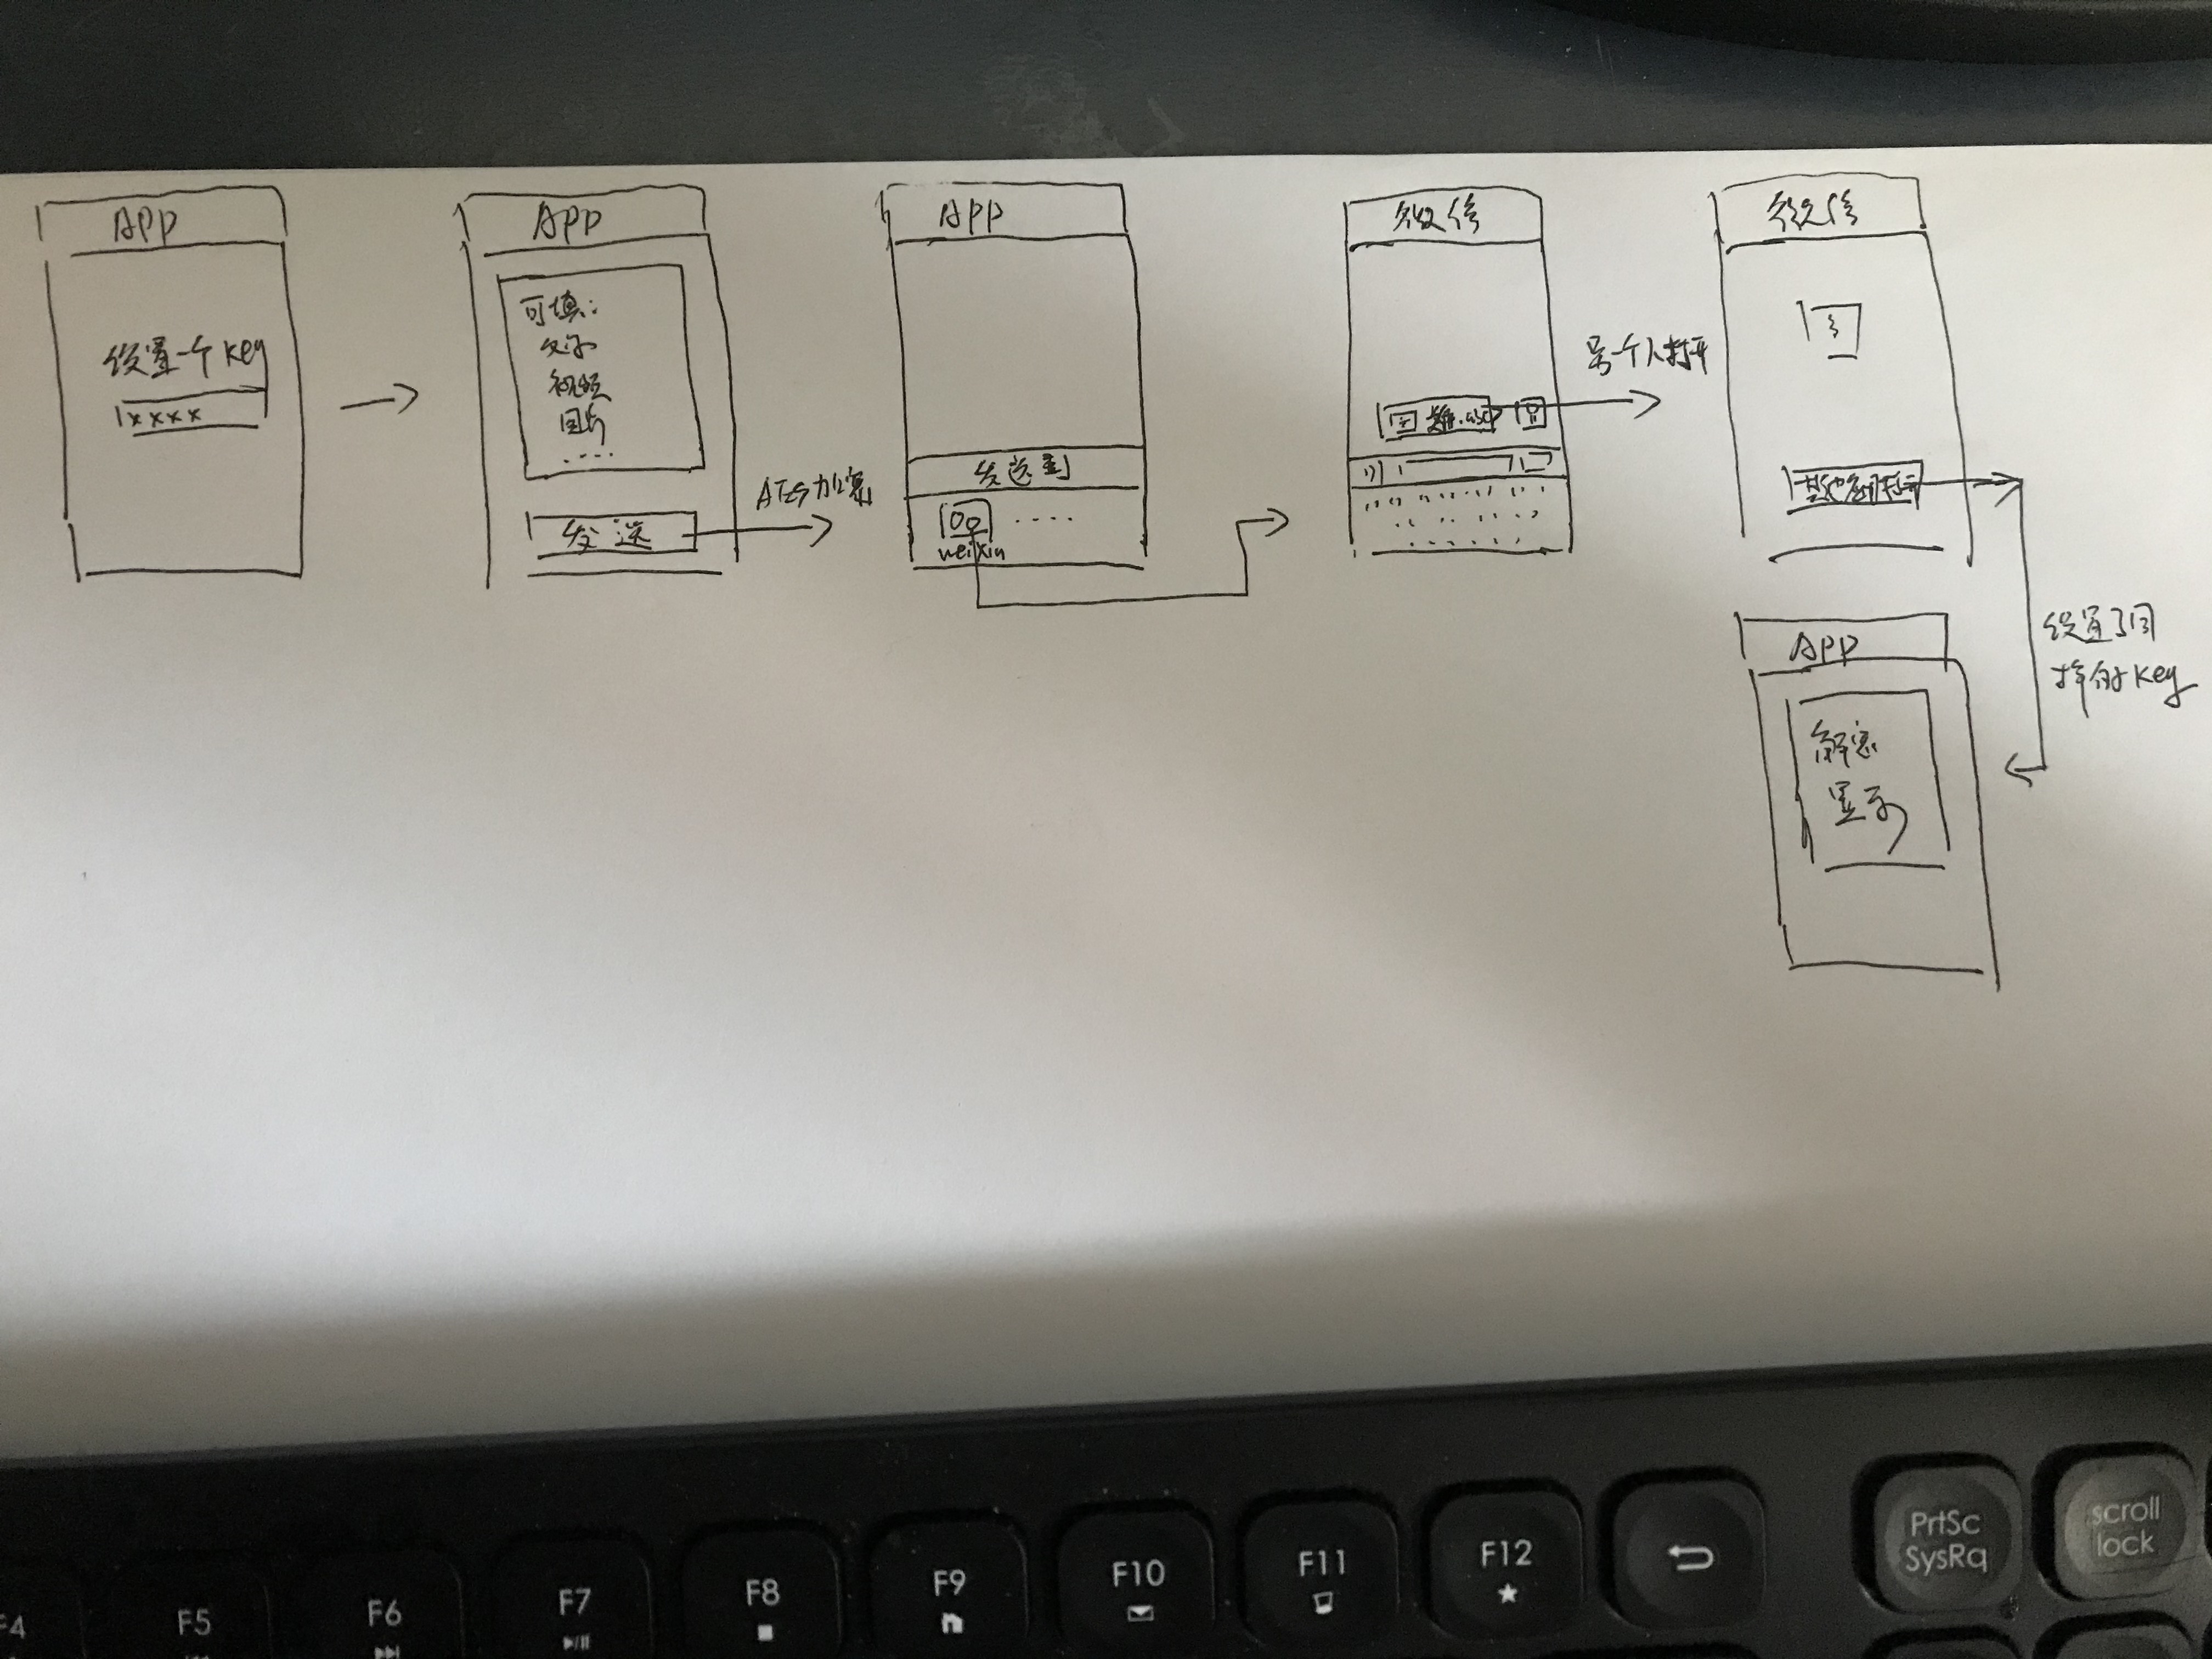 APP
设置一个key
xxxx
APP
可填:
文字
视频
图片
....
发送
AES加密
APP
发送到
....
weixin
微信
另一个人打开
微信
其他应用打开
设置了同
样的key
APP
解密
显示
F4
F5
F6
F7
F8
F9
F10
F11
F12
PrtSc
SysRq
scroll
lock